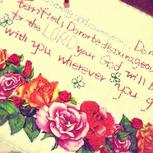 Do n
terrified; Donot be discouraged
for the LORD your God will b
with you wherever you g